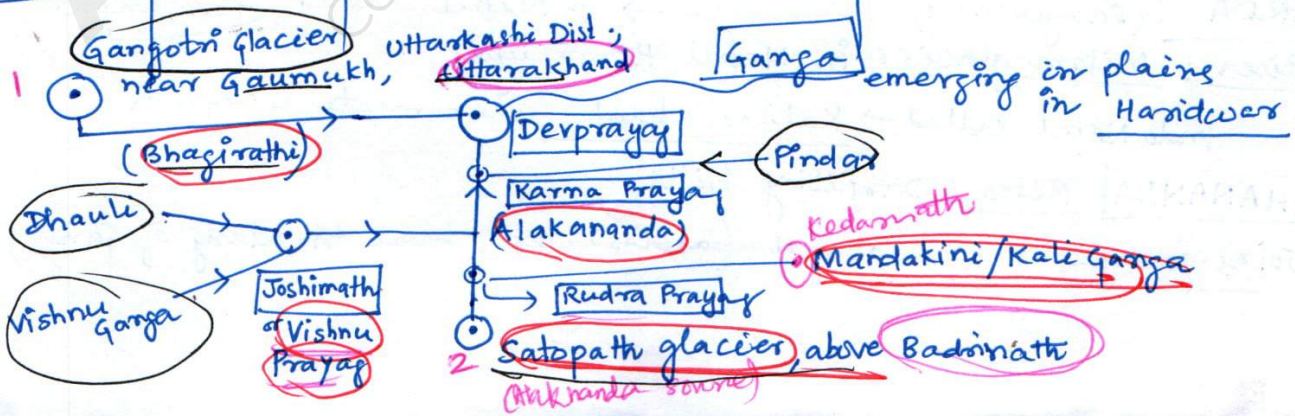 Gangotri Glacier, Uttarkashi Dist.,
1 near Gaumukh, Uttarakhand
Ganga emerging in plains
in Haridwar
(Bhagirathi)
Devprayag
Pindar
Karna Prayag
Dhauli
(Alakananda)
Kedarnath
Mandakini/Kali Ganga
Vishnu
Ganga
Joshimath
or Vishnu
Prayag
Rudra Prayag
2 Satopath glacier, above Badrinath
(Alaknanda source)